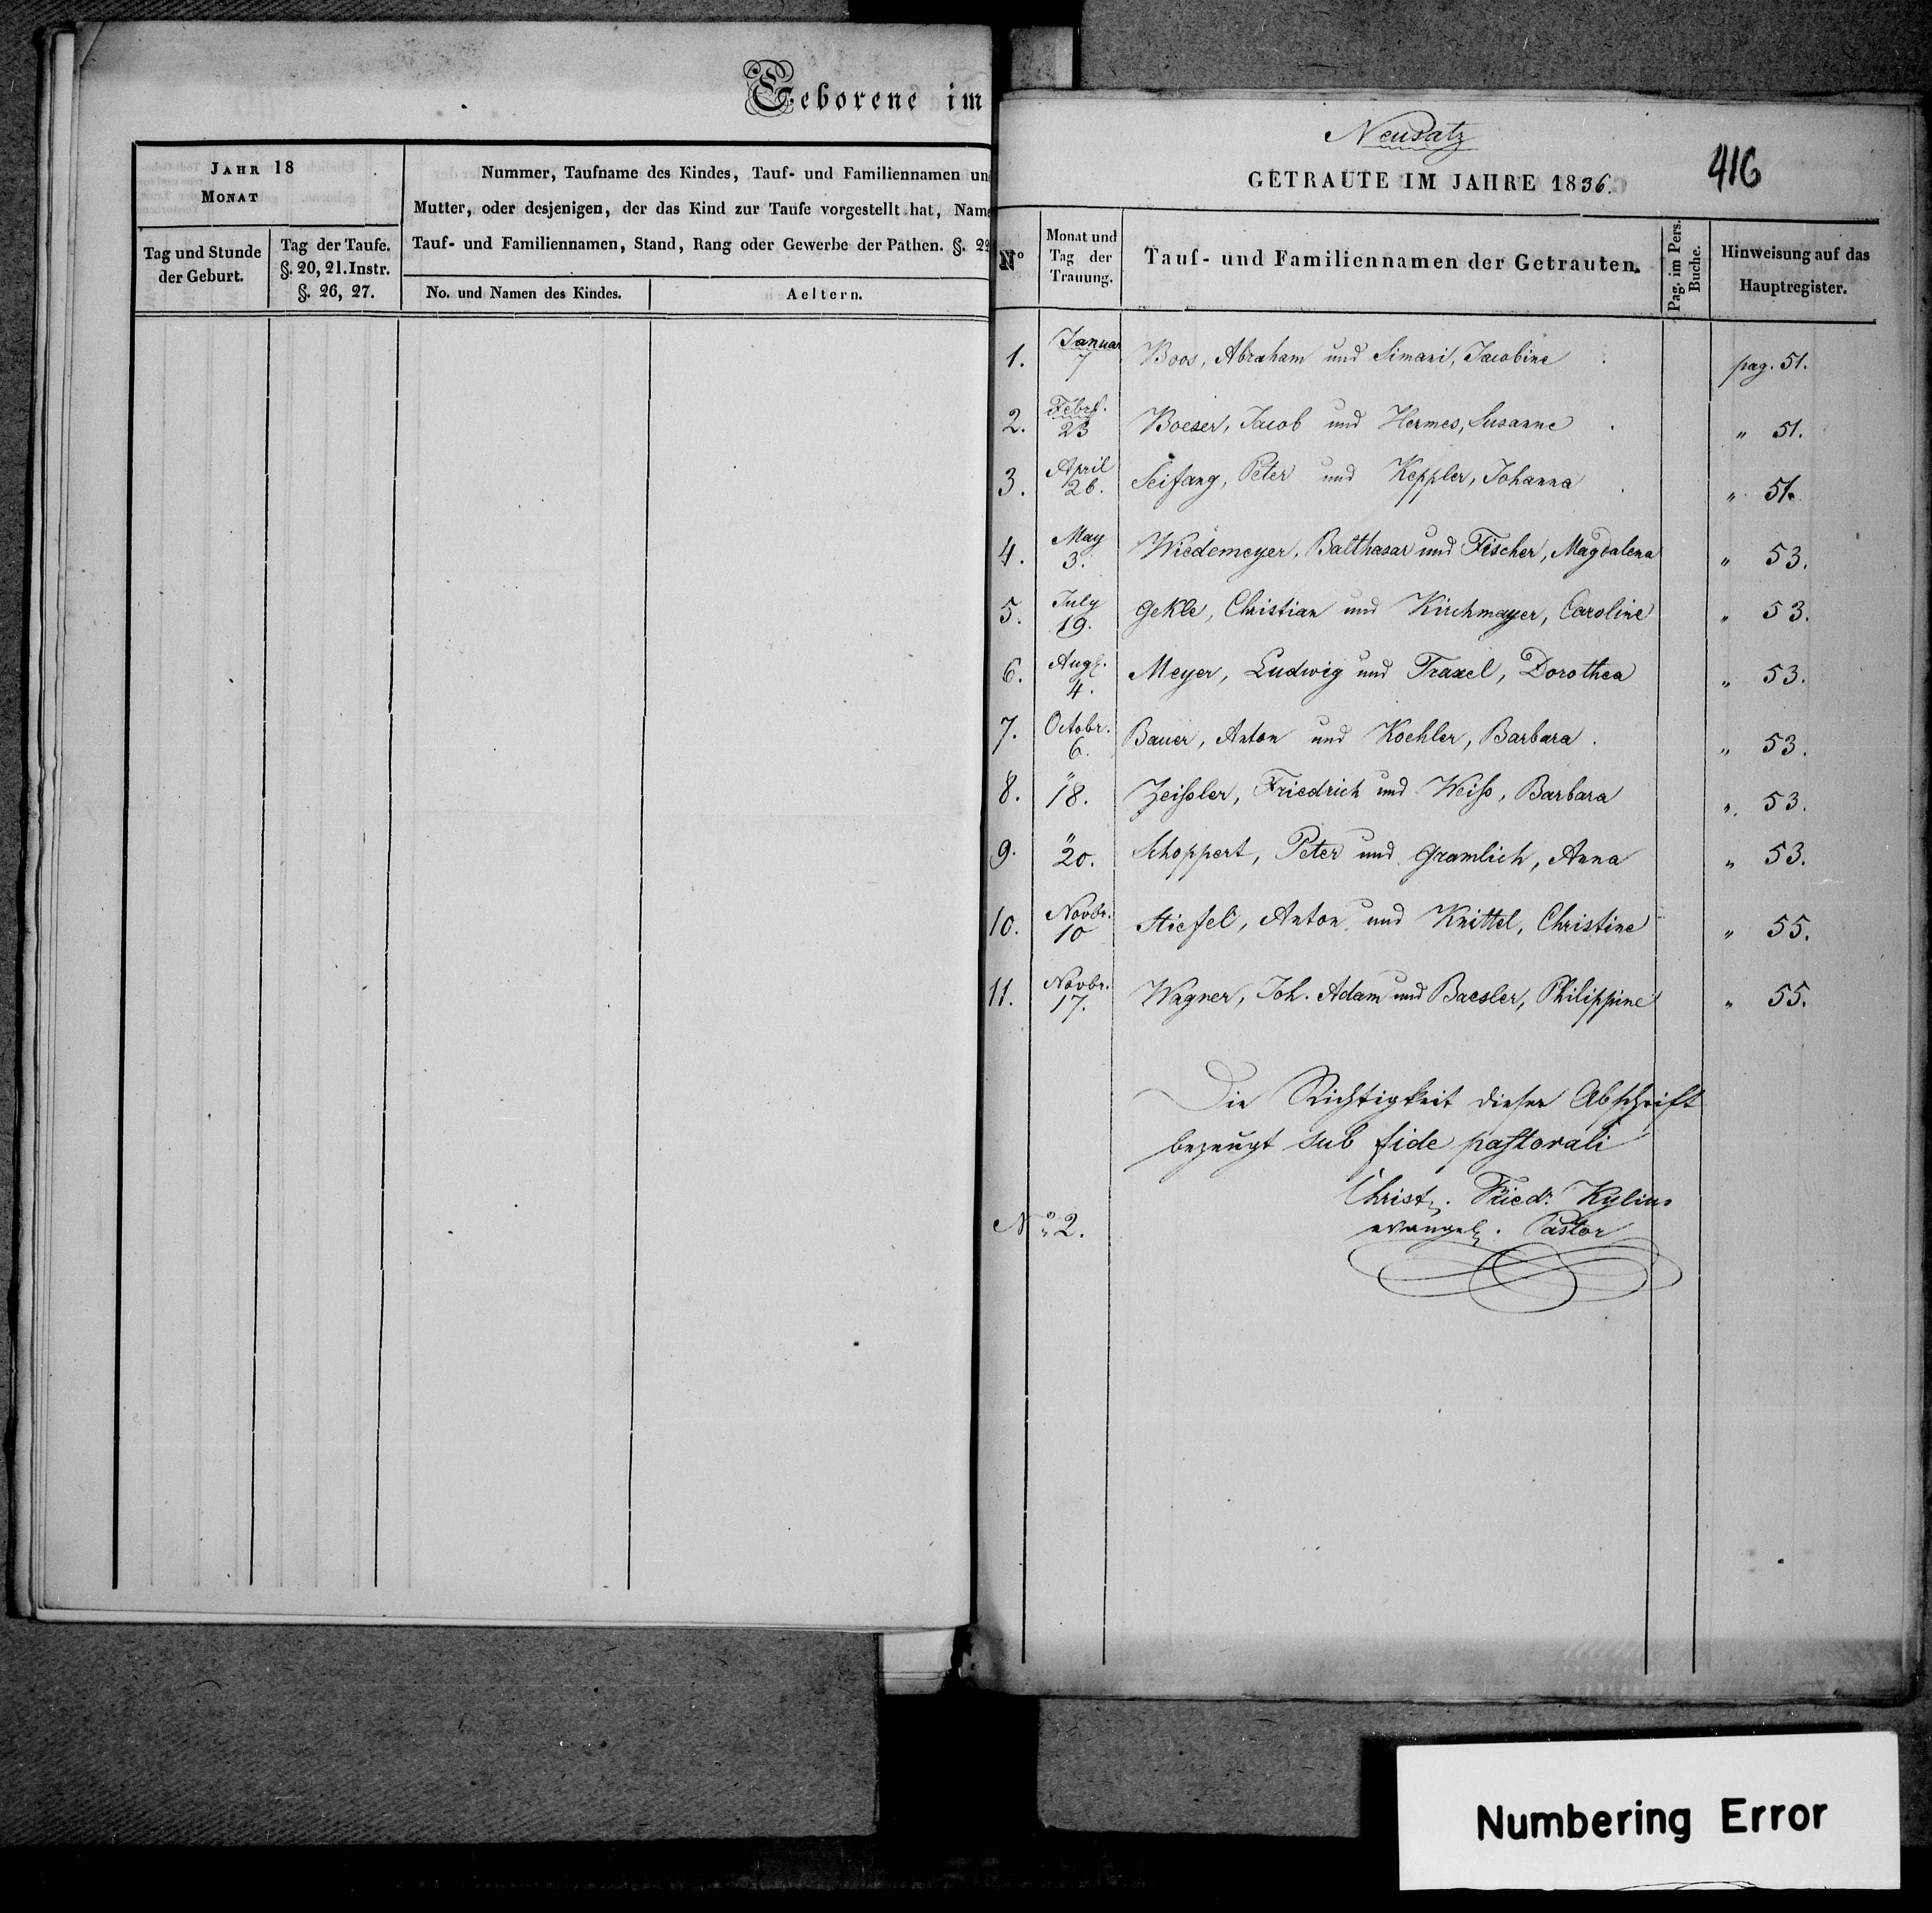 Geborene im
JAHR 18
MONAT
Tag und Stunde
der Geburt.
Tag der Taufe.
§. 20, 21. Instr.
§. 26, 27.
Nummer, Taufname des Kindes, Tauf- und Familiennamen un
Mutter, oder desjenigen, der das Kind zur Taufe vorgestellt hat, Name
Tauf- und Familiennamen, Stand, Rang oder Gewerbe der Pathen. §. 22
No. und Namen des Kindes.
Aeltern.
Neusatz
416
GETRAUTE IM JAHRE 1836.
No
Monat und
Tag der
Trauung.
Tauf- und Familiennamen der Getrauten.
Pag. im Pers.
Buche.
Hinweisung auf das
Hauptregister.
1. Januar 7 Boos, Abraham und Simani, Jacobine pag. 51.
2. Febr. 23 Boeser, Jacob und Hermes, Susanne " 51.
3. April 26. Seifang, Peter und Keppler, Johanna " 51.
4. May 3. Wiedemeyer, Balthasar und Fischer, Magdalena " 53.
5. July 19. Gekle, Christian und Kirchmayer, Caroline " 53.
6. Aug. 4. Meyer, Ludwig und Traxel, Dorothea " 53.
7. Octobr. 6. Bauer, Anton und Koehler, Barbara. " 53.
8. " 18. Zeißler, Friedrich und Weiß, Barbara " 53.
9. " 20. Schoppert, Peter und Gramlich, Anna " 53.
10. Novbr. 10 Stiefel, Anton und Knittel, Christine " 55.
11. Novbr. 17. Wagner, Joh. Adam und Baesler, Philippine " 55.
Die Richtigkeit dieser Abschrift
bezeugt sub fide pastorali
Christ. Friedr. Kylius
No 2.
evangel. Pastor
Numbering Error